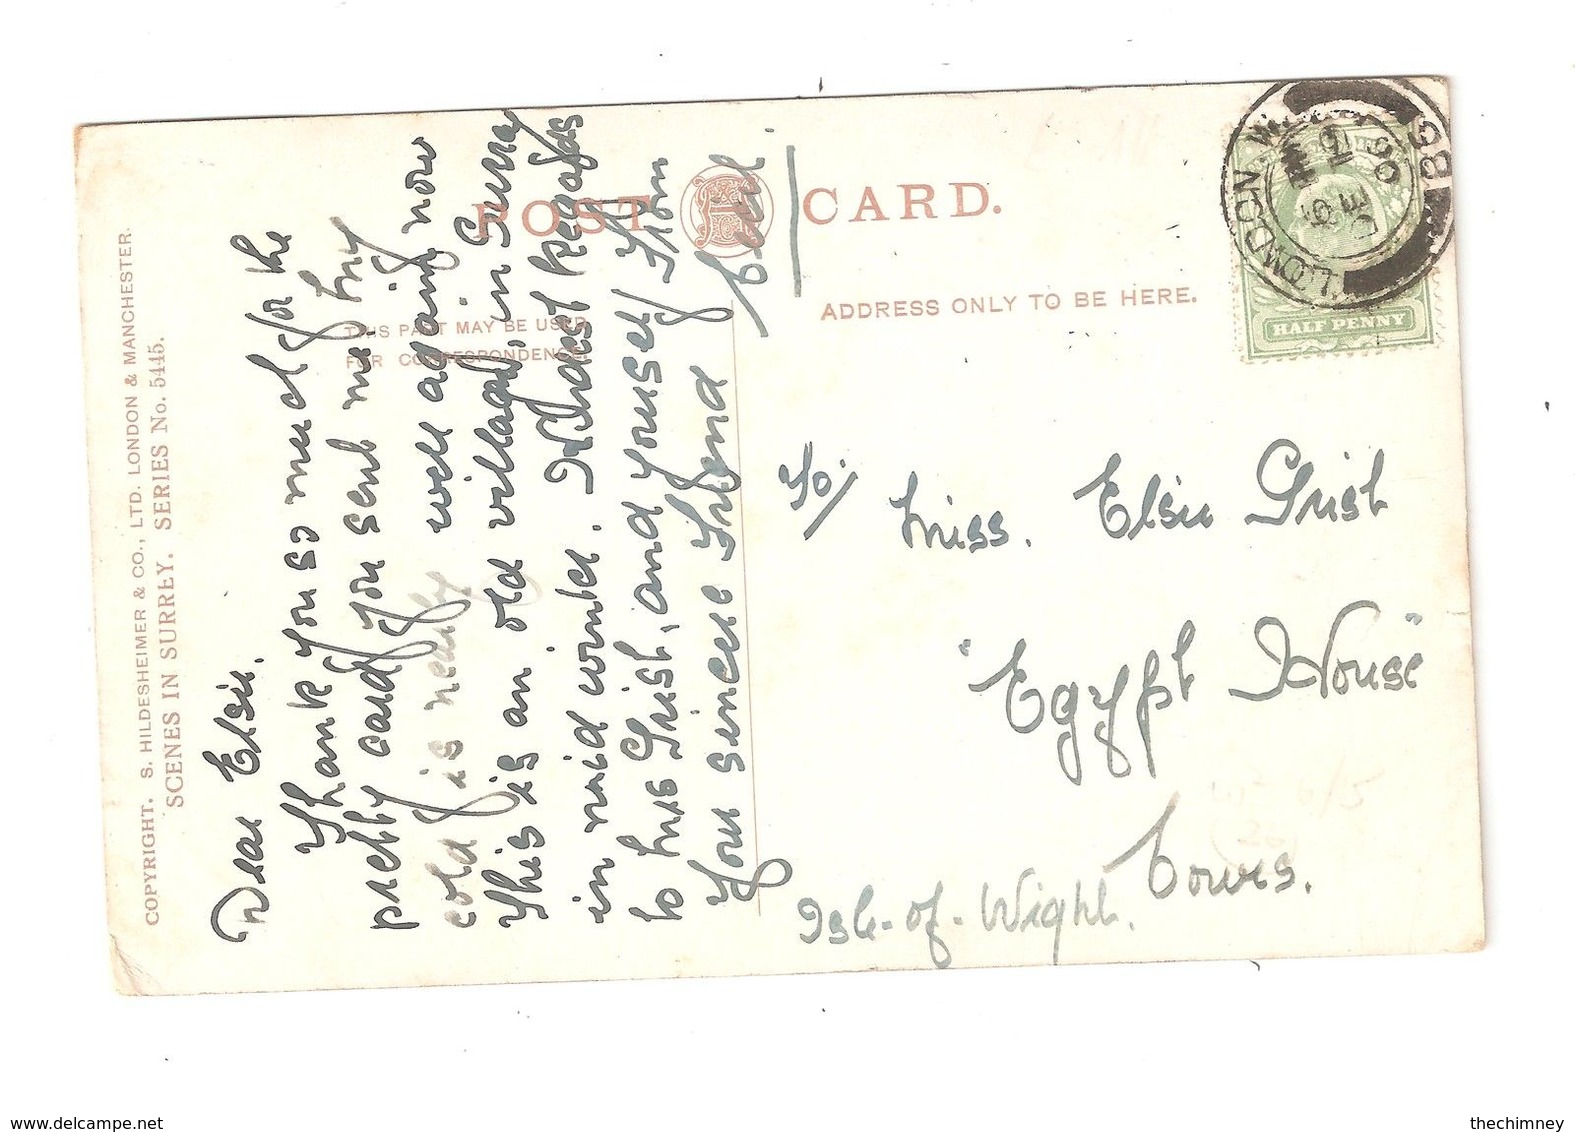 COPYRIGHT. S. HILDESHEIMER & CO., LTD. LONDON & MANCHESTER.
SCENES IN SURREY. SERIES No. 5445.
POST CARD.
THIS PART MAY BE USED
FOR CORRESPONDENCE.
ADDRESS ONLY TO BE HERE.
Dear Elsie.
Thank you so much for the
pretty card you sent me, my
cold is nearly well again now
This is an old village, in Surrey
in mid winter. Kindest regards
to Mrs Grist, and yourself from
Your sincere friend Cecil
To/
Miss. Elsie Grist
"Egypt House"
Cowes.
Isle-of-Wight.
LONDON W.
DE 19
06
HALF PENNY
www.delcampe.net
thechimney